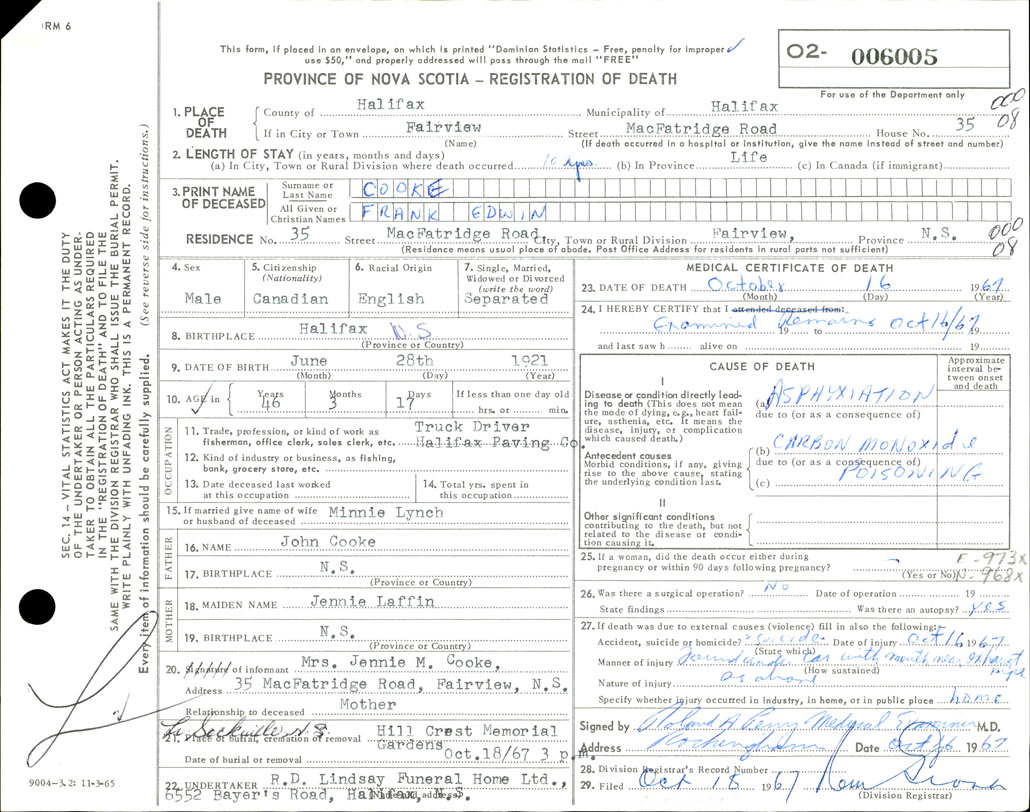 ORM 6
This form, if placed in an envelope, on which is printed "Dominion Statistics – Free, penalty for improper
use $50," and properly addressed will pass through the mail "FREE"
PROVINCE OF NOVA SCOTIA – REGISTRATION OF DEATH
O2- 006005
For use of the Department only
000
08
1. PLACE OF DEATH
County of Halifax Municipality of Halifax
If in City or Town Fairview Street MacFatridge Road House No. 35
(Name) (If death occurred in a hospital or institution, give the name instead of street and number)
2. LENGTH OF STAY (in years, months and days)
(a) In City, Town or Rural Division where death occurred 10 yrs. (b) In Province Life (c) In Canada (if immigrant)
3. PRINT NAME OF DECEASED
Surname or Last Name COOKE
All Given or Christian Names FRANK EDWIN
RESIDENCE No. 35 Street MacFatridge Road, City, Town or Rural Division Fairview, Province N.S.
000
08
(Residence means usual place of abode. Post Office Address for residents in rural parts not sufficient)
4. Sex
Male
5. Citizenship (Nationality)
Canadian
6. Racial Origin
English
7. Single, Married, Widowed or Divorced (write the word)
Separated
8. BIRTHPLACE Halifax N.S
(Province or Country)
9. DATE OF BIRTH June 28th 1921
(Month) (Day) (Year)
10. AGE in Years 46 Months 3 Days 17 If less than one day old
hrs. or min.
OCCUPATION
11. Trade, profession, or kind of work as fisherman, office clerk, sales clerk, etc. Truck Driver
Halifax Paving Co.
12. Kind of industry or business, as fishing, bank, grocery store, etc.
13. Date deceased last worked at this occupation
14. Total yrs. spent in this occupation
15. If married give name of wife or husband of deceased Minnie Lynch
FATHER
16. NAME John Cooke
17. BIRTHPLACE N.S.
(Province or Country)
MOTHER
18. MAIDEN NAME Jennie Laffin
19. BIRTHPLACE N.S.
(Province or Country)
20. Signature of informant Mrs. Jennie M. Cooke,
Address 35 MacFatridge Road, Fairview, N.S.
Relationship to deceased Mother
Sackville N.S.
21. Place of burial, cremation or removal Hill Crest Memorial
Gardens
Date of burial or removal Oct.18/67 3 p.m.
22. UNDERTAKER R.D. Lindsay Funeral Home Ltd.,
(Name and address)
6552 Bayer's Road, Halifax, N.S.
MEDICAL CERTIFICATE OF DEATH
23. DATE OF DEATH October 16 1967
(Month) (Day) (Year)
24. I HEREBY CERTIFY that I attended deceased from:
Examined Remains Oct 16/67
19 to 19
and last saw h alive on 19
CAUSE OF DEATH
Approximate interval between onset and death
I
Disease or condition directly leading to death (This does not mean the mode of dying, e.g., heart failure, asthenia, etc. It means the disease, injury, or complication which caused death.)
(a) ASPHYXIATION
due to (or as a consequence of)
Antecedent causes
Morbid conditions, if any, giving rise to the above cause, stating the underlying condition last.
(b) CARBON MONOXIDE
due to (or as a consequence of)
POISONING
(c)
II
Other significant conditions
contributing to the death, but not related to the disease or condition causing it.
25. If a woman, did the death occur either during pregnancy or within 90 days following pregnancy? –
(Yes or No)
E-973x
N-968x
26. Was there a surgical operation? No Date of operation 19
State findings Was there an autopsy? yes
27. If death was due to external causes (violence) fill in also the following:
Accident, suicide or homicide? "suicide Date of injury Oct 16 1967
(State which)
Manner of injury Found under car with mouth near exhaust pipe
(How sustained)
Nature of injury as above
Specify whether injury occurred in industry, in home, or in public place home
Signed by Roland A Perry Medical Examiner M.D.
Address Rockingham Date Oct 16 1967
28. Division Registrar's Record Number
29. Filed Oct 18 1967
(Division Registrar)
SEC. 14 – VITAL STATISTICS ACT MAKES IT THE DUTY
OF THE UNDERTAKER OR PERSON ACTING AS UNDER-
TAKER TO OBTAIN ALL THE PARTICULARS REQUIRED
IN THE "REGISTRATION OF DEATH" AND TO FILE THE
SAME WITH THE DIVISION REGISTRAR WHO SHALL ISSUE THE BURIAL PERMIT.
WRITE PLAINLY WITH UNFADING INK. THIS IS A PERMANENT RECORD.
Every item of information should be carefully supplied. (See reverse side for instructions.)
9004-3.2: 11-3-65